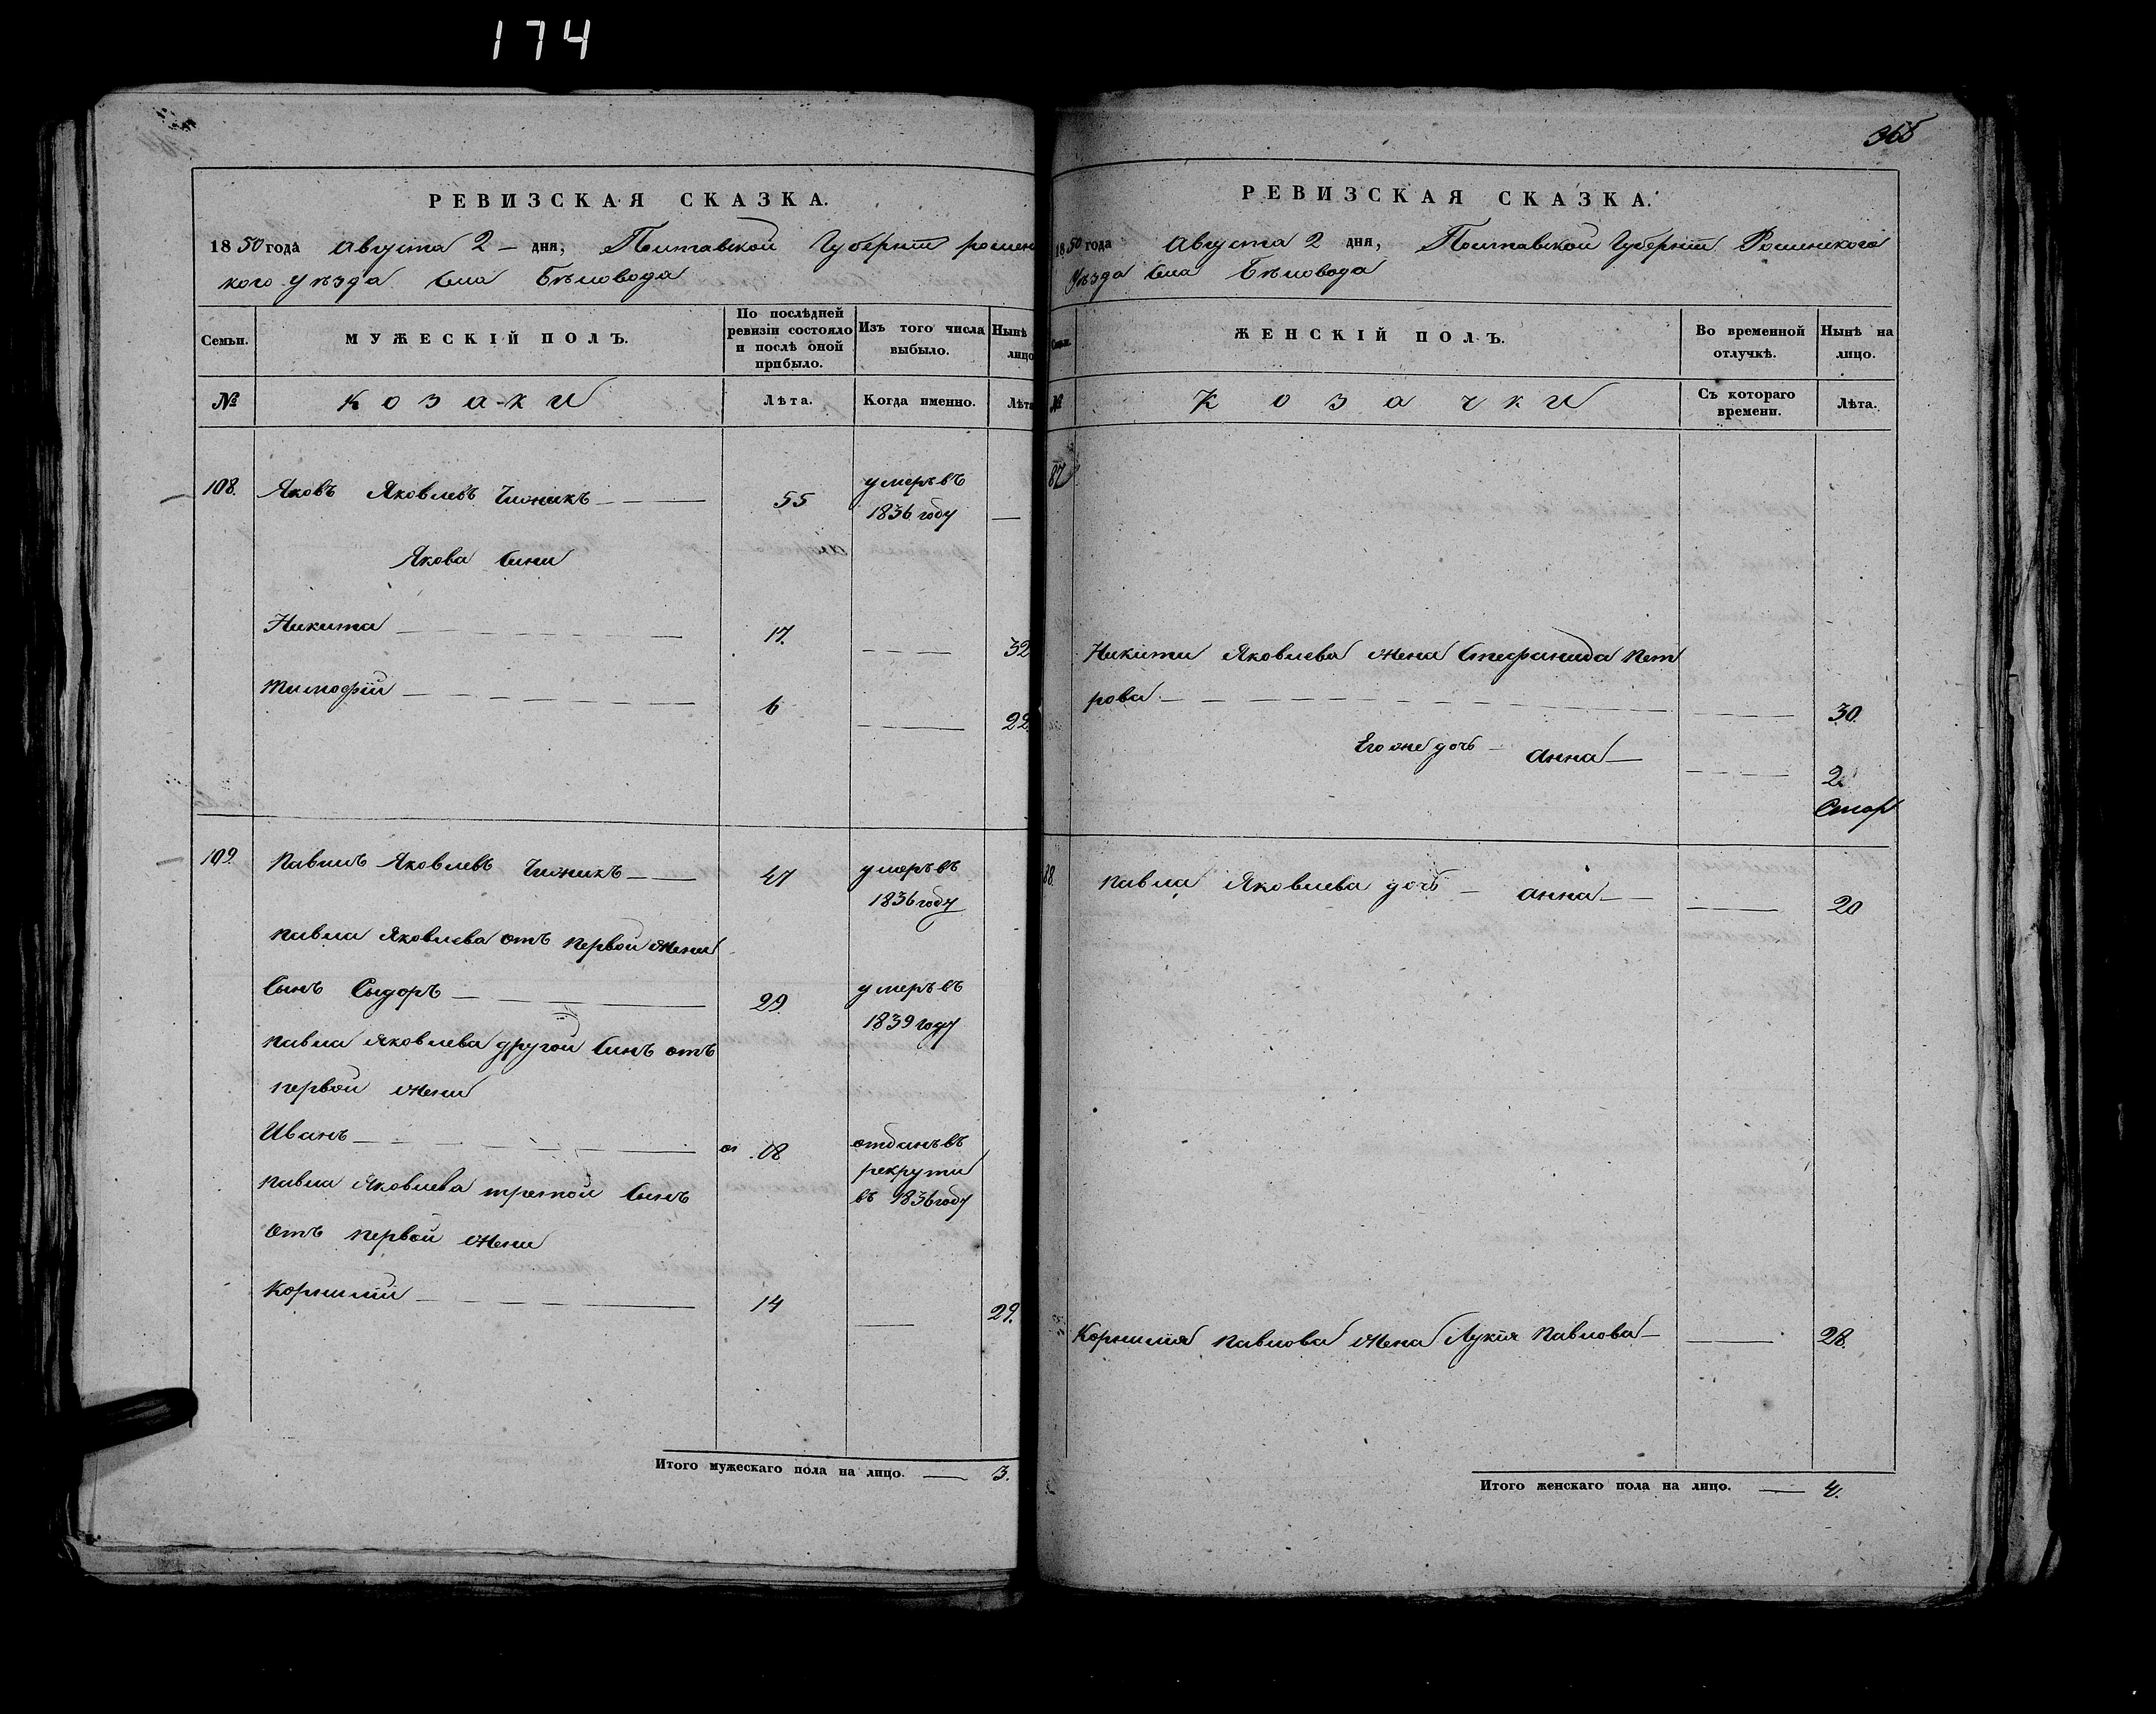 174
РЕВИЗСКАЯ СКАЗКА.
1850 года Августа 2 дня, Полтавской Губернїи ромен
кого уѣзда Села Бѣловода
Семьи.
МУЖЕСКІЙ ПОЛЪ.
По послѣдней ревизіи состояло и послѣ оной прибыло.
Изъ того числа выбыло.
Нынѣ лицо
№
козаки
Лѣта.
Когда именно.
Лѣта
108. Яковъ Яковлевъ 55 умеръ въ
1836 году
Якова Сини
Никита 17. 32
Тимофїй 6 22.
109. Павилъ Яковлевъ 47 умеръ въ
1836 году
павла Яковлева отъ первой жени
Сынъ Сыдоръ 29. умеръ въ
1839 году
павла Яковлева другой Синъ отъ
первой жени
Иванъ 08 отданъ въ
рекрути
въ 1836 году
павла Яковлева третой Сынъ
отъ первой жени
Корнилїй 14 29.
Итого мужескаго пола на лицо. 3.
365
РЕВИЗСКАЯ СКАЗКА.
1850 года Августа 2 дня, Полтавской Губернїи Роменского
Уѣзда Села Бѣловода
Семьи.
ЖЕНСКІЙ ПОЛЪ.
Во временной отлучкѣ.
Нынѣ на лицо.
№
Козачки
Съ котораго времени.
Лѣта.
87
Никити Яковлева жена Стефанида Пет
рова 30.
Его же дочь Анна 2
88. павла Яковлева дочь Анна 20
Корнилїя Павлова жена Лукїя Павлова 28.
Итого женскаго пола на лицо. 4.